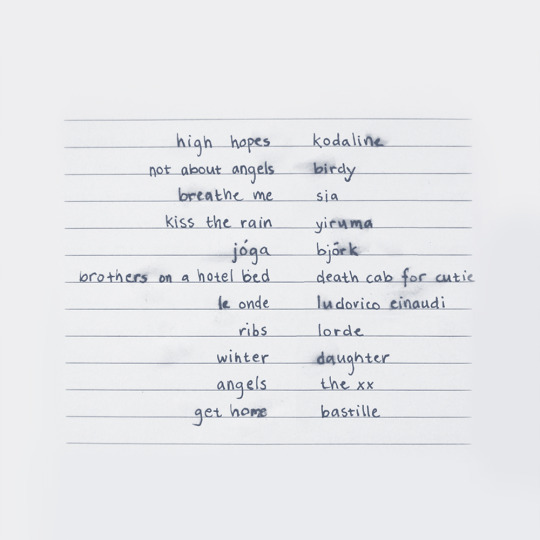 high hopes kodaline
not about angels birdy
breathe me sia
kiss the rain yiruma
jóga björk
brothers on a hotel bed death cab for cutie
le onde ludovico einaudi
ribs lorde
winter daughter
angels the xx
get home bastille